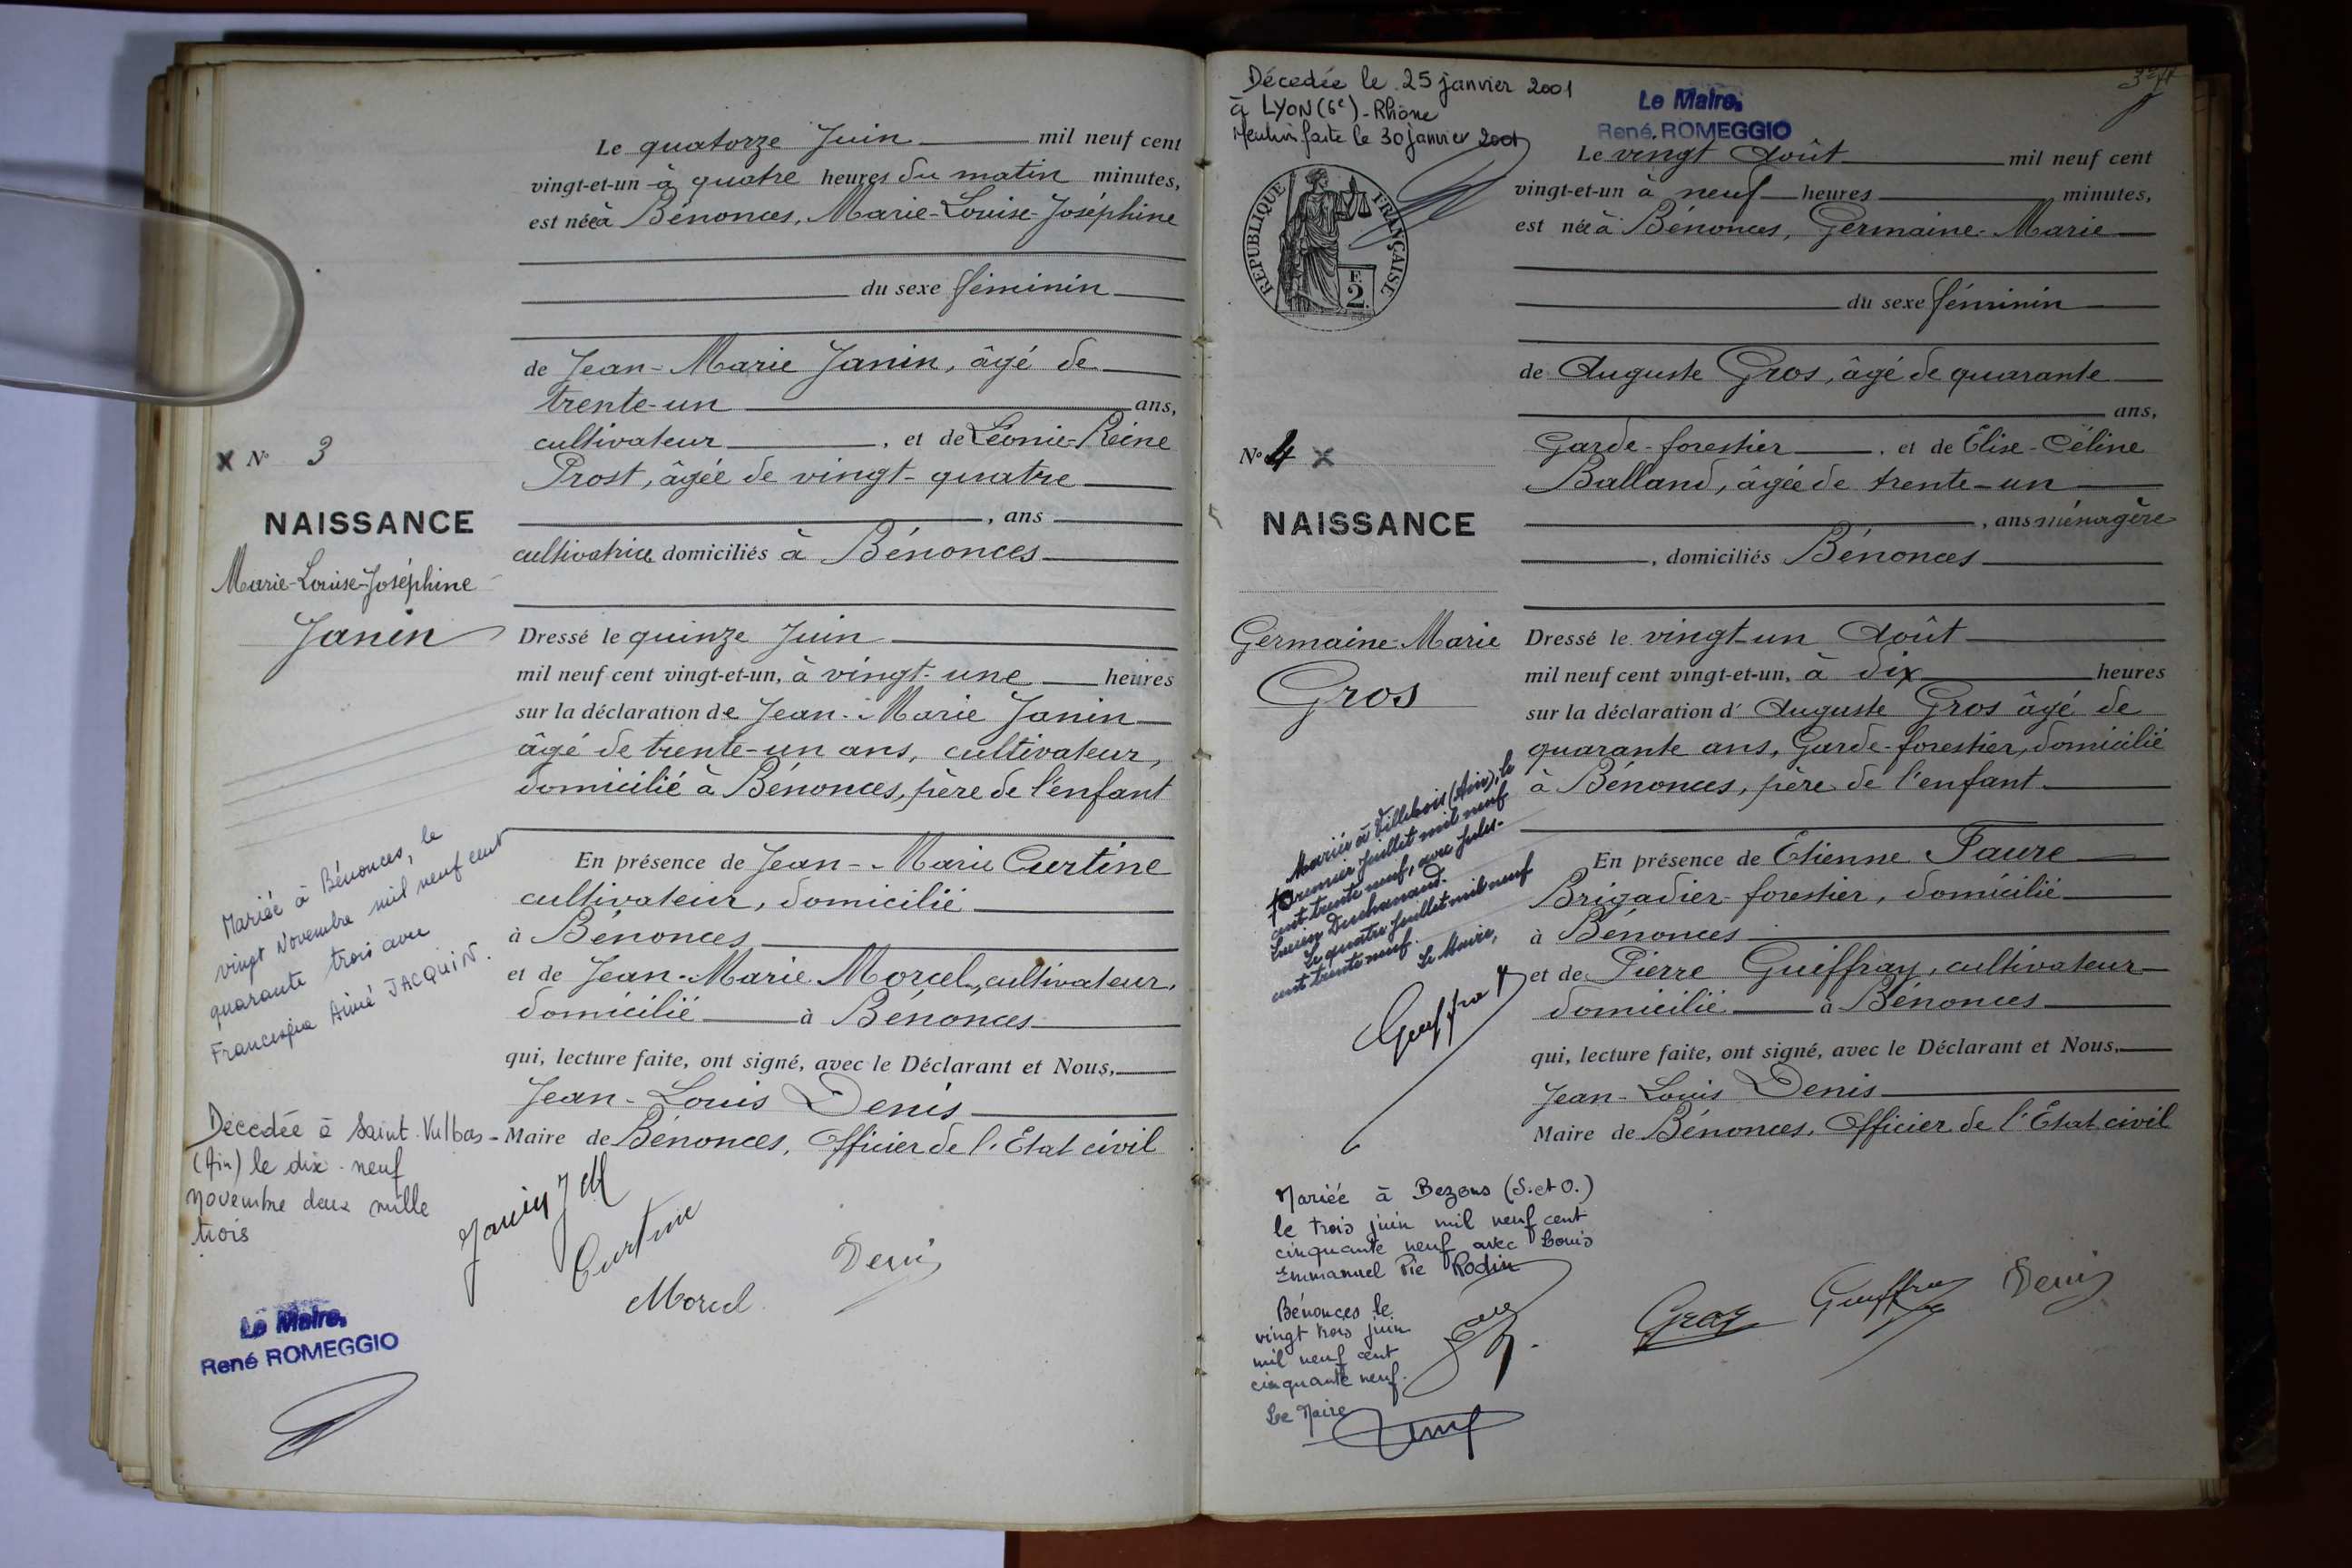 Le quatorze Juin mil neuf cent
vingt-et-un à quatre heures du matin minutes,
est née à Bénonces, Marie-Louise-Joséphine
du sexe féminin
de Jean-Marie Janin, âgé de
trente-un ans,
cultivateur, et de Léonie-Reine
Prost, âgée de vingt-quatre
, ans
cultivatrice domiciliés à Bénonces
X No 3
NAISSANCE
Marie-Louise-Joséphine
Janin
Dressé le quinze Juin
mil neuf cent vingt-et-un, à vingt-une heures
sur la déclaration de Jean-Marie Janin
âgé de trente-un ans, cultivateur,
domicilié à Bénonces, père de l'enfant
En présence de Jean-Marie Curtine
cultivateur, domicilié
à Bénonces
et de Jean-Marie Morcel, cultivateur,
domicilié à Bénonces
qui, lecture faite, ont signé, avec le Déclarant et Nous,
Jean-Louis Denis
Maire de Bénonces, Officier de l'État civil
Mariée à Bénonces, le
vingt Novembre mil neuf cent
quarante trois avec
Aimé JACQUIN.
Décédée à Saint-Vulbas
(Ain) le dix-neuf
novembre deux mille
trois
Le Maire,
René ROMEGGIO
Janin J M
Curtine
Morcel
Denis
Décédée le 25 janvier 2001
à LYON (6e) - Rhône
Mention faite le 30 janvier 2001
Le Maire,
René ROMEGGIO
REPUBLIQUE FRANÇAISE
F.
2
Le vingt Août mil neuf cent
vingt-et-un à neuf heures minutes,
est née à Bénonces, Germaine-Marie
du sexe féminin
de Auguste Gros, âgé de quarante
ans,
Garde-forestier, et de Élise-Céline
Balland, âgée de trente-un
, ans ménagère
, domiciliés Bénonces
No 4 X
NAISSANCE
Germaine-Marie
Gros
Dressé le vingt-un Août
mil neuf cent vingt-et-un, à dix heures
sur la déclaration d' Auguste Gros âgé de
quarante ans, Garde-forestier, domicilié
à Bénonces, père de l'enfant
En présence de Étienne Faure
Brigadier-forestier, domicilié
à Bénonces
et de Pierre Guiffray, cultivateur
domicilié à Bénonces
qui, lecture faite, ont signé, avec le Déclarant et Nous,
Jean-Louis Denis
Maire de Bénonces, Officier de l'État civil
Mariée à Villebois (Ain), le
premier Juillet mil neuf
cent trente neuf, avec Jules-
Lucien Duchanaud.
Le quatre Juillet mil neuf
cent trente neuf.
Le Maire,
Mariée à Bezons (S. et O.)
le trois juin mil neuf cent
cinquante neuf avec Louis
Emmanuel Pie Rodin
Bénonces le
vingt trois juin
mil neuf cent
cinquante neuf.
Le Maire
Gros
Guiffray
Denis